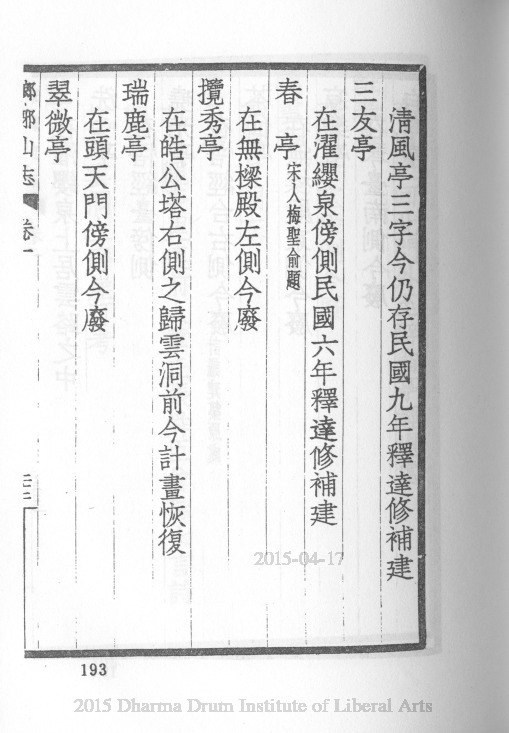 清風亭三字今仍存民國九年釋達修補建
三友亭
在濯纓泉傍側民國六年釋達修補建
春　亭宋人梅聖俞題
在無樑殿左側今廢
攬秀亭
在皓公塔右側之歸雲洞前今計畫恢復
瑞鹿亭
在頭天門傍側今廢
翠微亭
瑯琊山志　卷一
193
2015-04-17
2015 Dharma Drum Institute of Liberal Arts